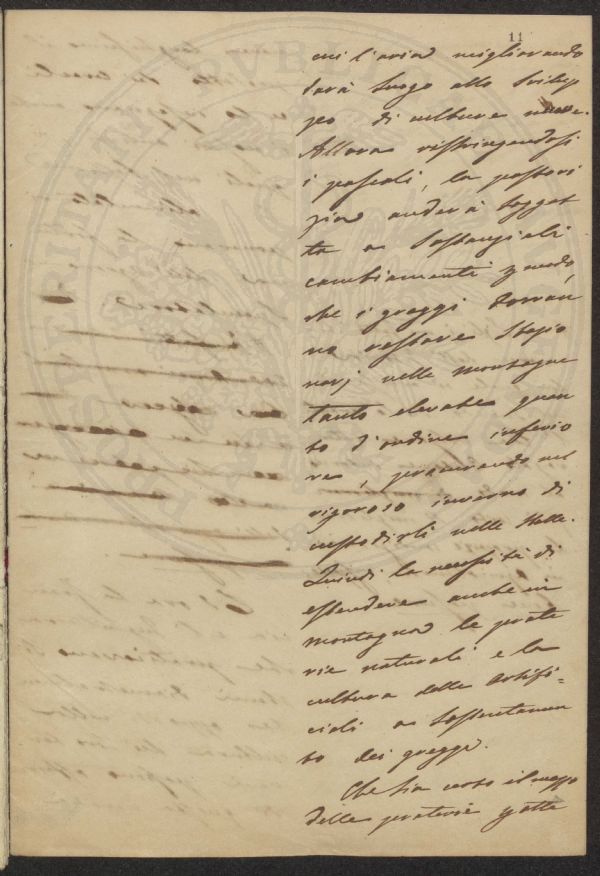 11
cui l'aria migliorando
darà luogo allo svilup
po di culture nuove.
Allora ristringendosi
i pascoli, la pastori
zia anderà sogget
ta a sostanziali
cambiamenti
che i greggi dovran
no restare stazio
narj nelle montagne
tanto elevate quan
to d'ordine inferio
re, procurando nel
rigoroso inverno di
custodirli nelle stalle.
Quindi la necessità di
estendere anche in
montagna le prate
rie naturali e la
cultura delle artifi=
ciali a sostentamen
to dei greggi.
Che sia certo il mezzo
delle praterie